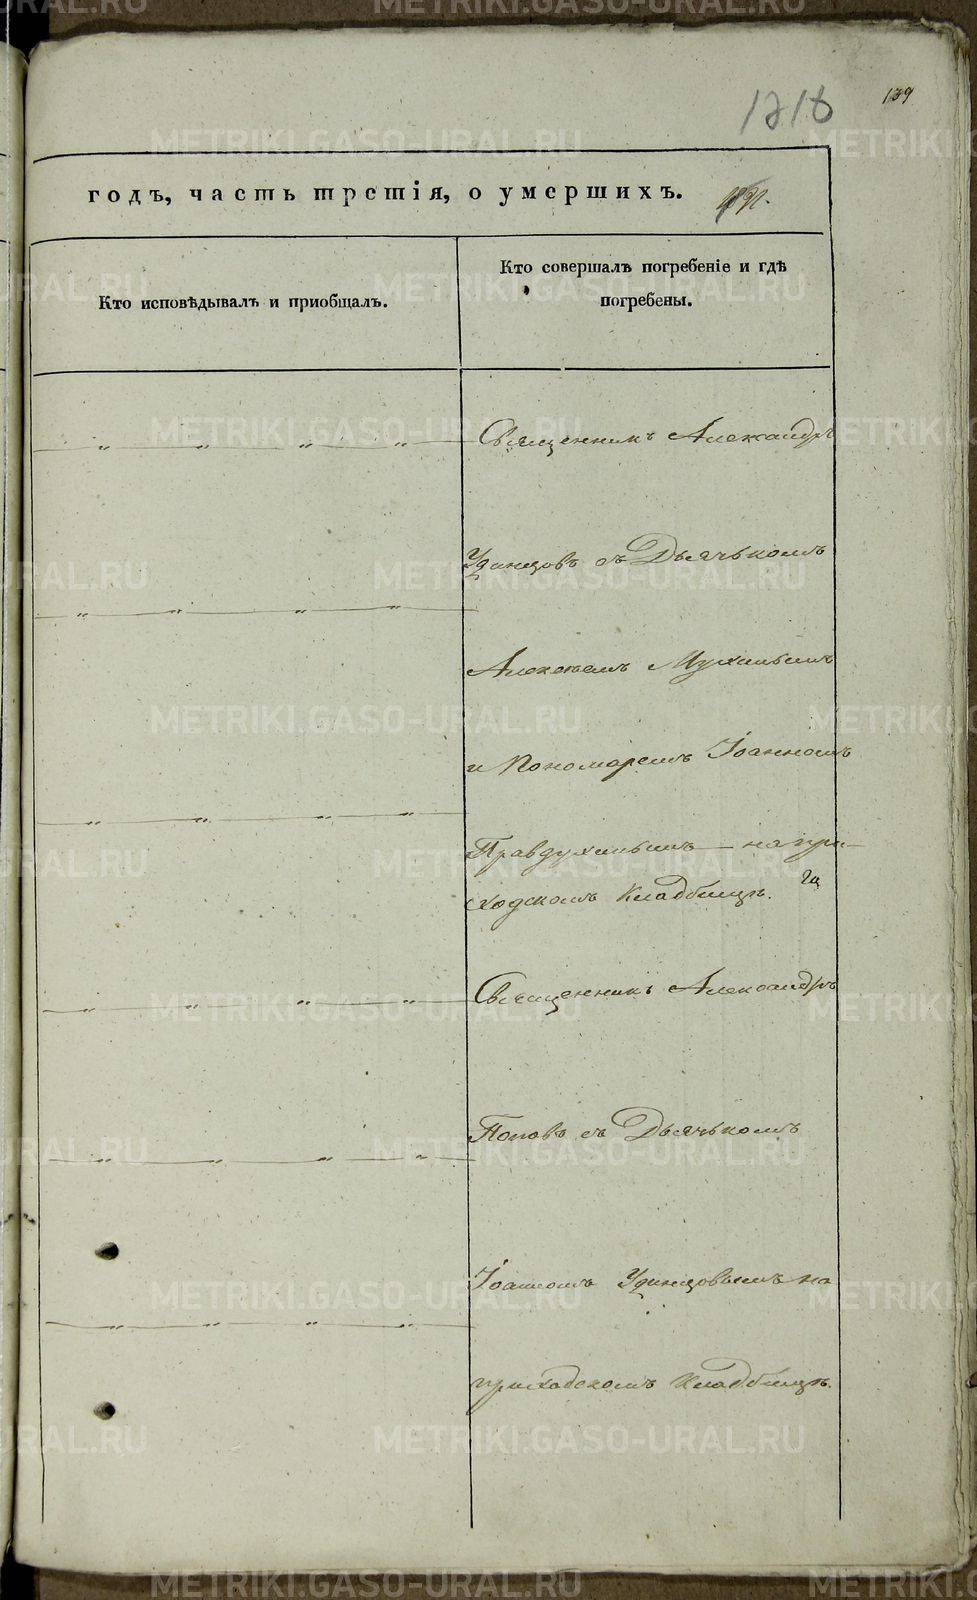 1218
139
годъ, часть третія, о умершихъ.
Кто исповѣдывалъ и приобщалъ.
Кто совершалъ погребеніе и гдѣ
погребены.
Священникъ Александръ
Удинцовъ съ Дьячькомъ
Алексѣемъ Мухинымъ
и Пономаремъ Іоанномъ
Правдухинымъ на при-
ходскомъ Кладбищѣ.
Священникъ Александръ
Поповъ съ Дьячькомъ
Іоанномъ Удинцовымъ на
приходскомъ Кладбищѣ.
METRIKI.GASO-URAL.RU